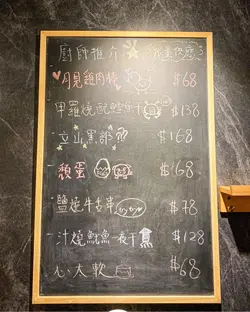 廚師推介
月見雞肉棒 $68
甲羅燒 $138
立山黑部 $168
顏蛋 $168
鹽燒牛舌串 $78
汁燒魷魚一夜干 $128
心太軟 $68